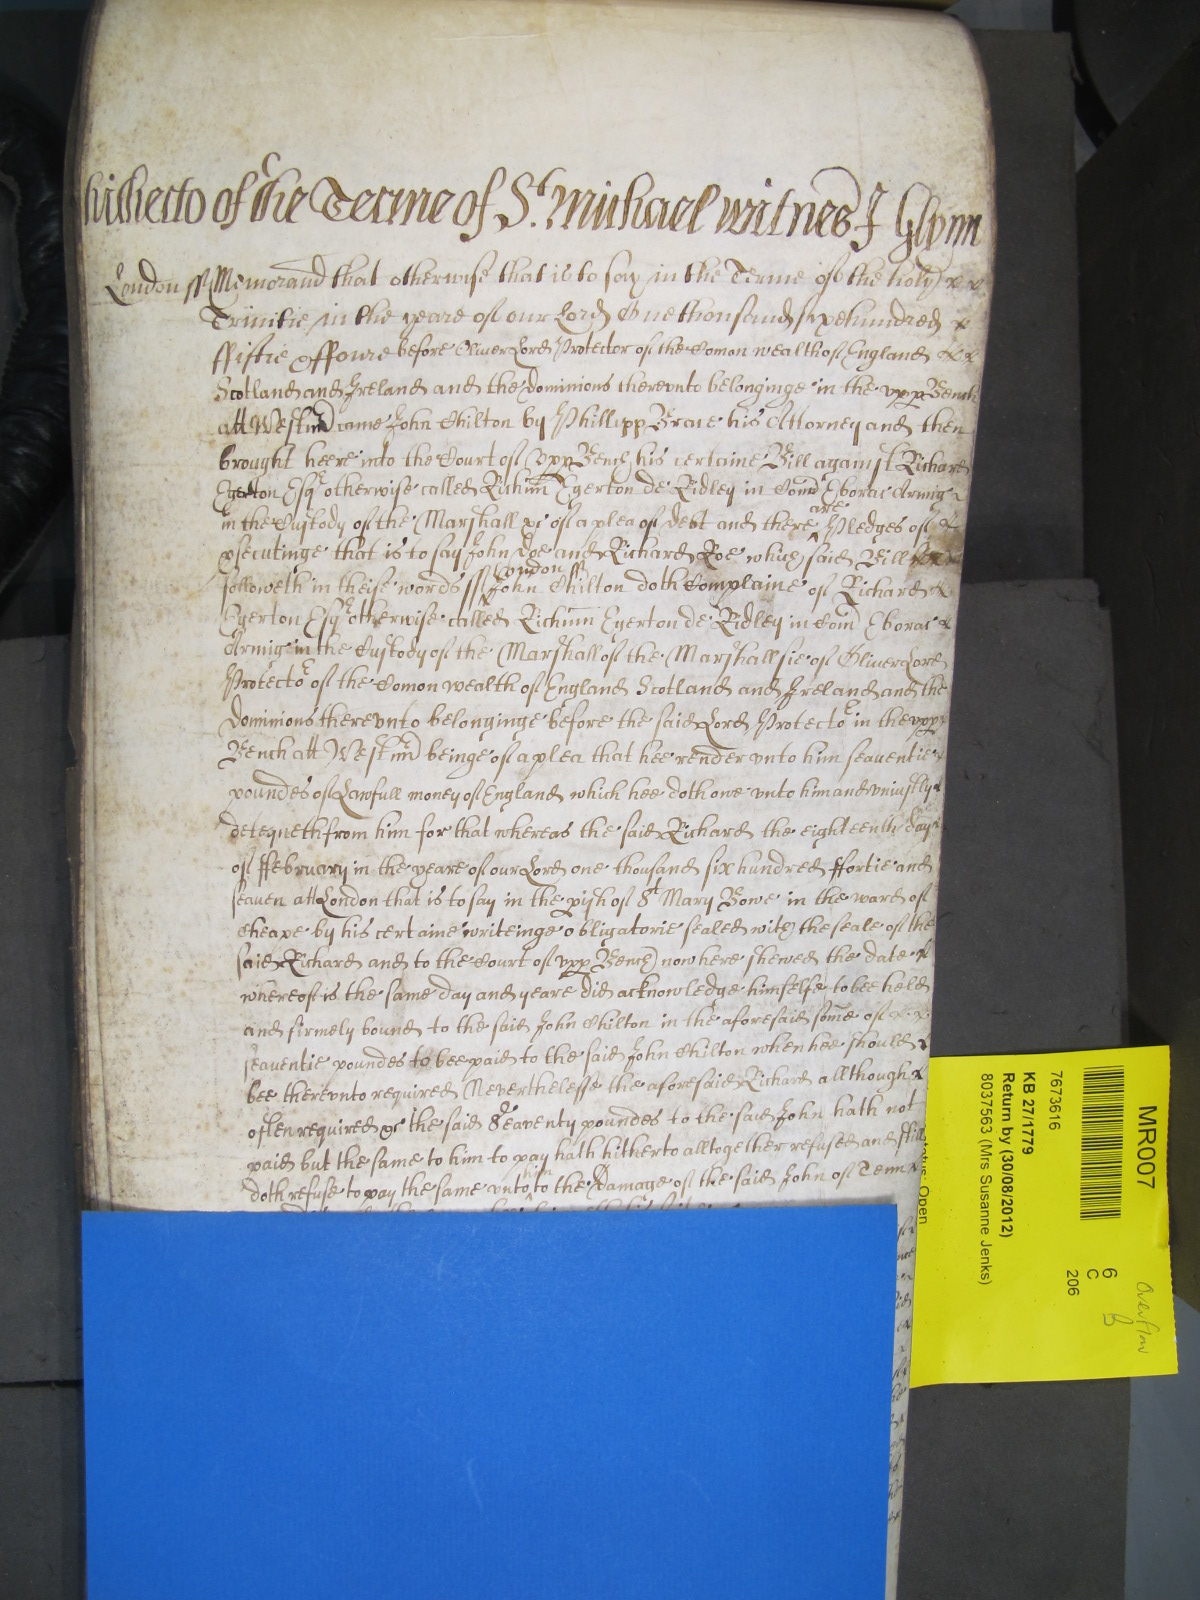 hitherto of the Terme of St. Michael witnes J Glynn
London ss Memorand that otherwise that is to say in the Terme of the holy
Trinitie in the yeare of our Lord One thousand sixe hundred
ffiftie & ffoure before Oliver Lord Protector of the Comon wealth of England
Scotland and Ireland and the dominions therevnto belonginge in the vpp Bench
att Westm came John Chilton by Phillipp Brace his Attorney and then
brought heere into the Court of vpp Bench his certaine Bill against Richard
Egerton Esqr otherwise called Richum Egerton de Ridley in Com Eborac Armig
in the Custody of the Marshall &c of a plea of debt and there are Pledges of
psecutinge that is to say John Doe and Richard Roe which said Bill
followeth in theise words ss London ss John Chilton doth Complaine of Richard
Egerton Esqr otherwise called Richum Egerton de Ridley in Com Eborac
Armig in the Custody of the Marshall of the Marshallsie of Oliver Lord
Protector of the Comon wealth of England Scotland and Ireland and the
Dominions therevnto belonginge before the said Lord Protector in the vpp
Bench att Westm beinge of a plea that hee render vnto him seaventie
poundes of Lawfull money of England which hee doth owe vnto him and vniustly
deteyneth from him for that whereas the said Richard the eighteenth day
of ffebruary in the yeare of our Lord one thousand six hundred ffortie and
seaven att London that is to say in the pish of St Mary Bowe in the ward of
Cheape by his certaine writeinge obligatorie sealed with the seale of the
said Richard and to the Court of vpp Bench now here shewed the date
whereof is the same day and yeare did acknowledge himselfe to bee held
and firmely bound to the said John Chilton in the aforesaid some of
seaventie poundes to bee paid to the said John Chilton when hee should
bee therevnto required Neverthelesse the aforesaid Richard allthough
often required &c the said Seaventy poundes to the said John hath not
paid but the same to him to pay hath hitherto alltogether refused and still
doth refuse to pay the same vnto him to the Damage of the said John of Tenn
MR007
7673616
KB 27/1779
Return by (30/08/2012)
8037563 (Mrs Susanne Jenks)
6
C
206
Overflow
B
Status: Open